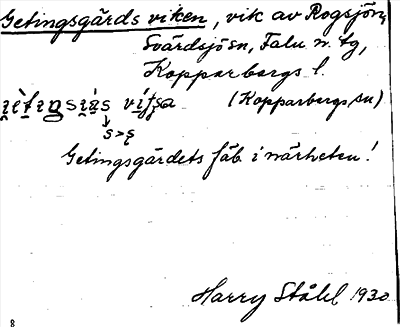 Getingsgårds viken, vik av Rogsjön,
Svärdsjö sn, Falu n. tg,
Kopparbergs l.
(Kopparbergs, su)
s>ş
Getingsgårdets fäb. i närheten!
Harry Ståhl 1930
8